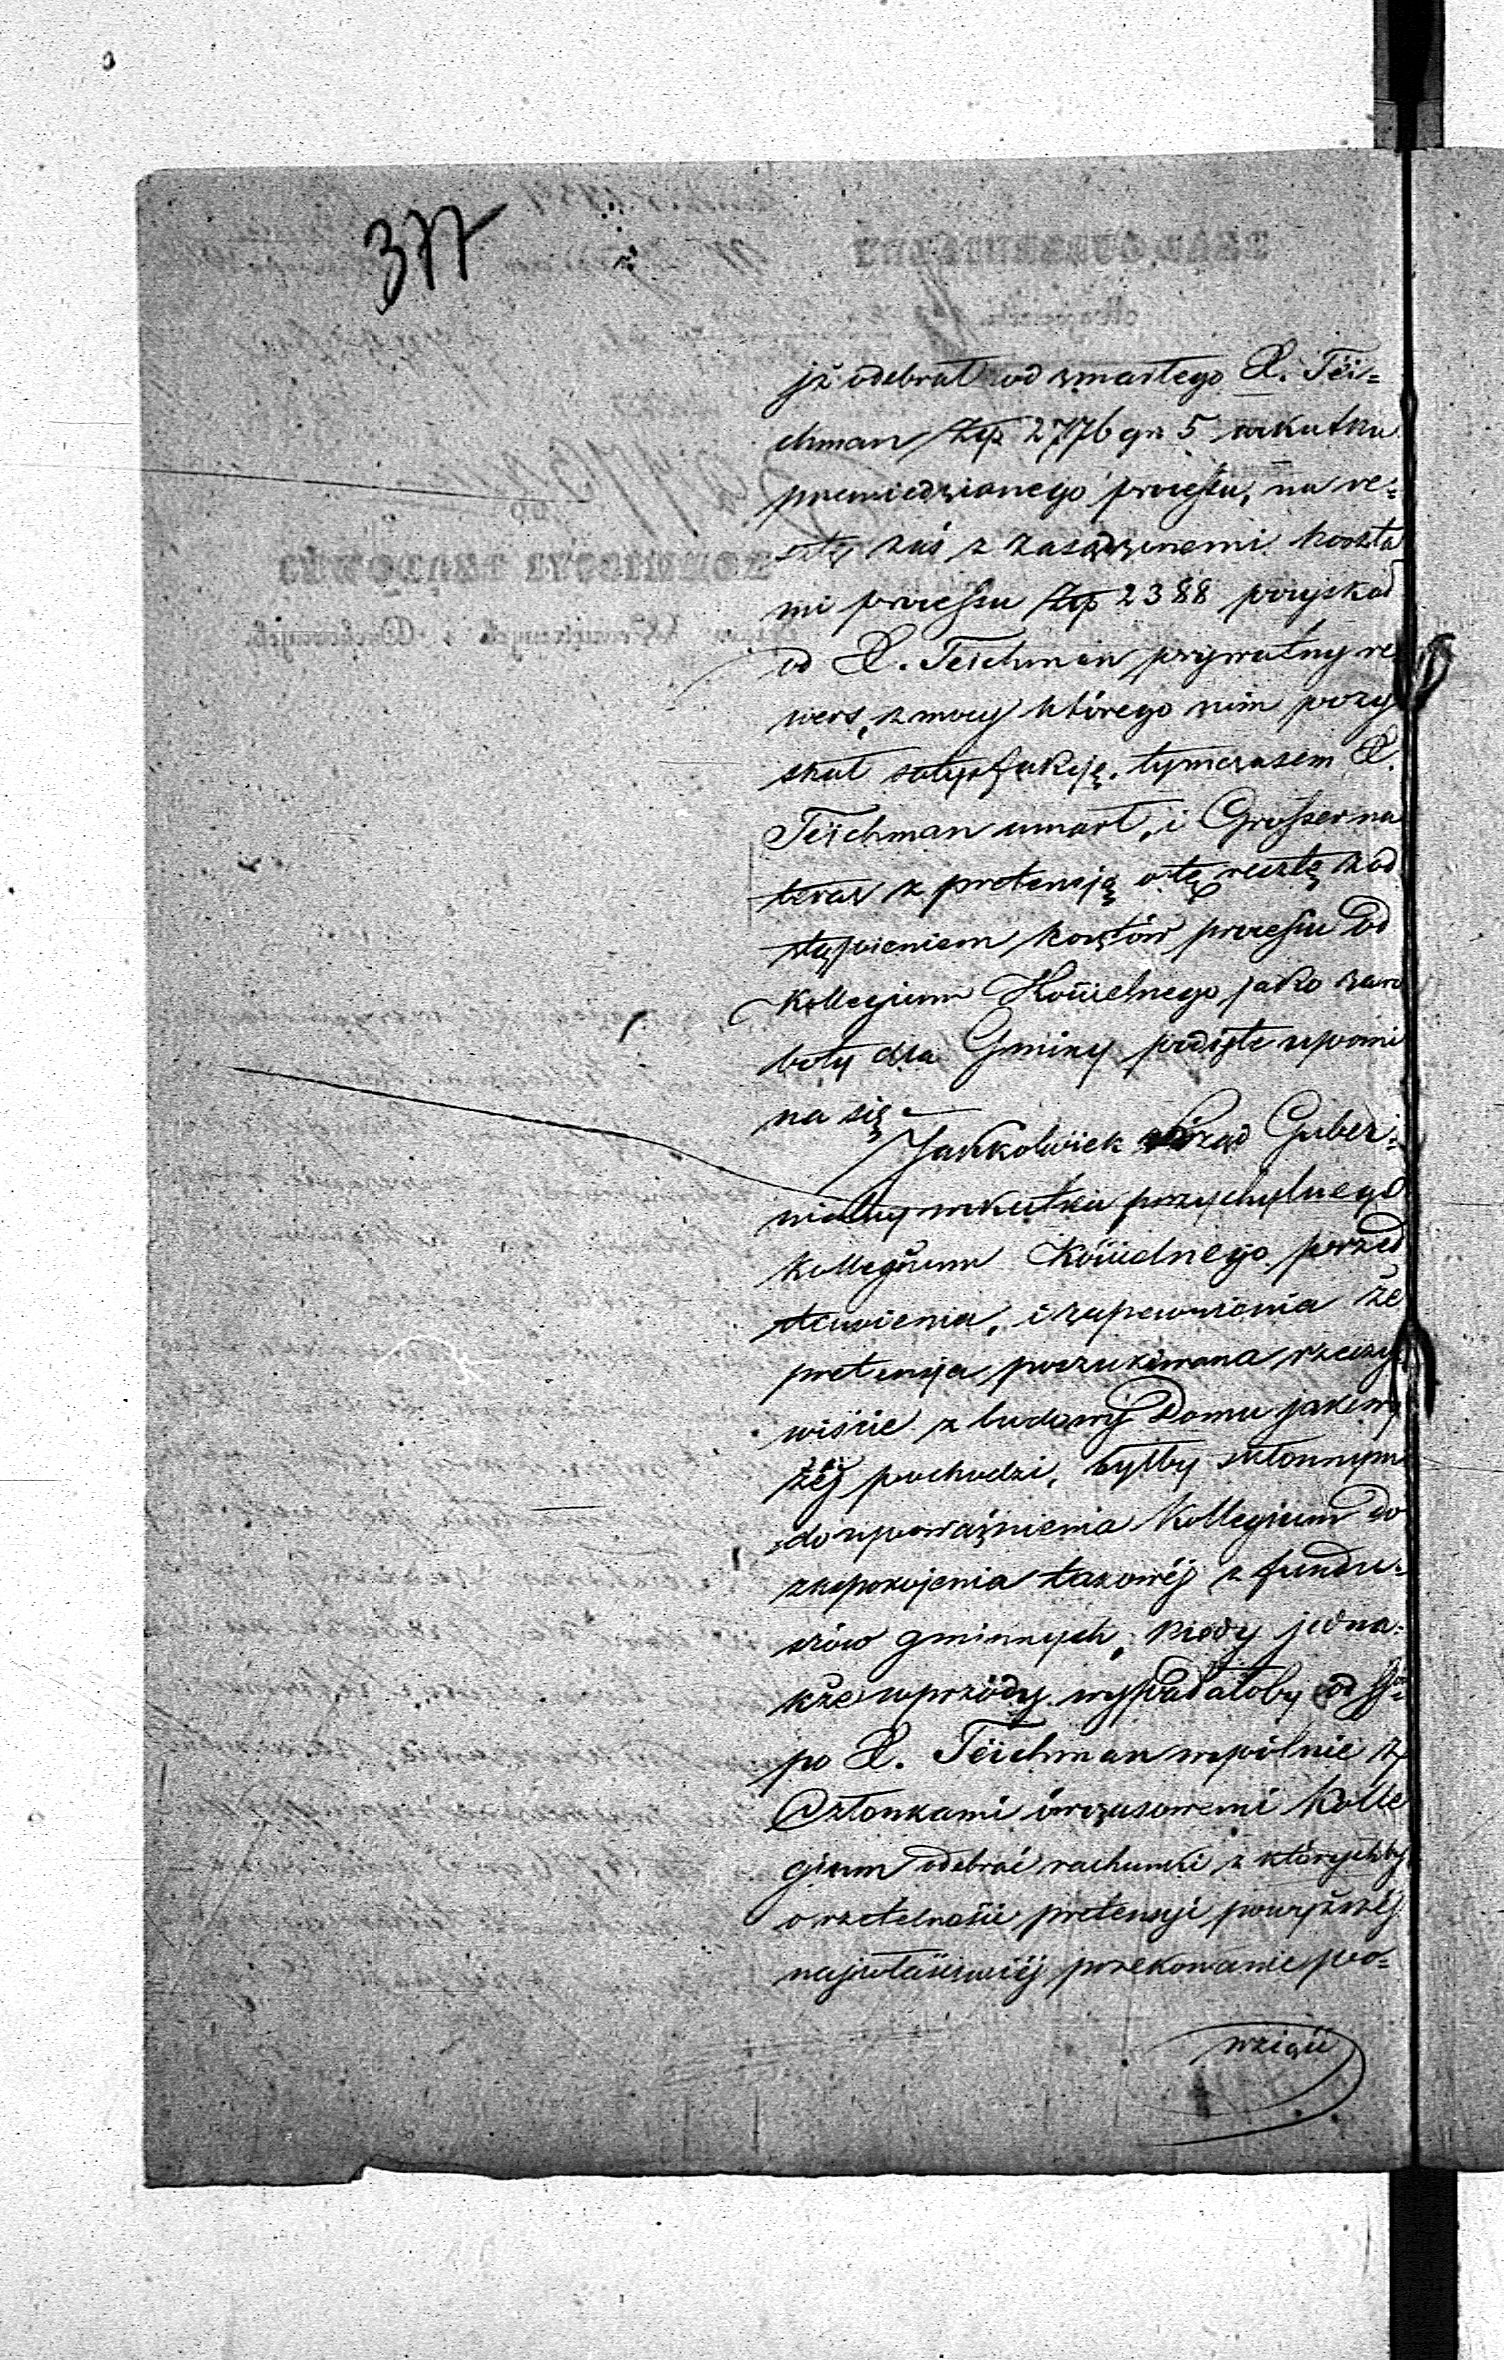 377
jż odebrał od zmarłego X. Tei=
chman Złp 2776 gr 5 wskutku
przewiedzionego processu, na re=
sztę zaś z zasądzonemi koszta
mi processu Złp 2388 pozyskał
od X. Teichman prywatny re
wers, z mocy którego nim pozy
skał satysfakcją, tymczasem X.
Teichman umarł, i Grosser na
teraz z pretensją o tę resztę z od
stąpieniem kosztów processu od
Kollegium Kościelnego jako za ro
boty dla Gminy podięte upomi
na się
Jakkolwiek Rząd Guber=
nialny wskutku przychylnego
Kollegium Kościelnego przed
stawienia, i zapewnienia że
pretensja poszukiwana rzeczy
wiście z budowy Domu jak wy
żéj pochodzi, byłby skłonnym
do upoważnienia Kollegium do
zaspokojenia takowéj z fundu=
szów gminnych, kiedy jedna=
kże wprzódy wypadałoby od
po X. Teichman wspólnie z
Członkami ówczasowemi Kolle
gium odebrać rachunki z których by
o rzetelności pretensyi powyższéj
najwłaściwiéj przekonanie po=
wziąść